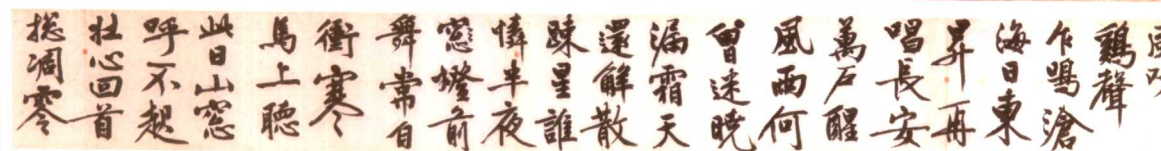 鷄聲
乍鳴滄
海日東
昇再
唱長安
萬戶醒
風雨何
曾迷曉
漏霜天
還解散
疎星誰
憐半夜
窓燈前
舞常自
衝寒
馬上聽
此日山窓
呼不起
壯心回首
摠凋零